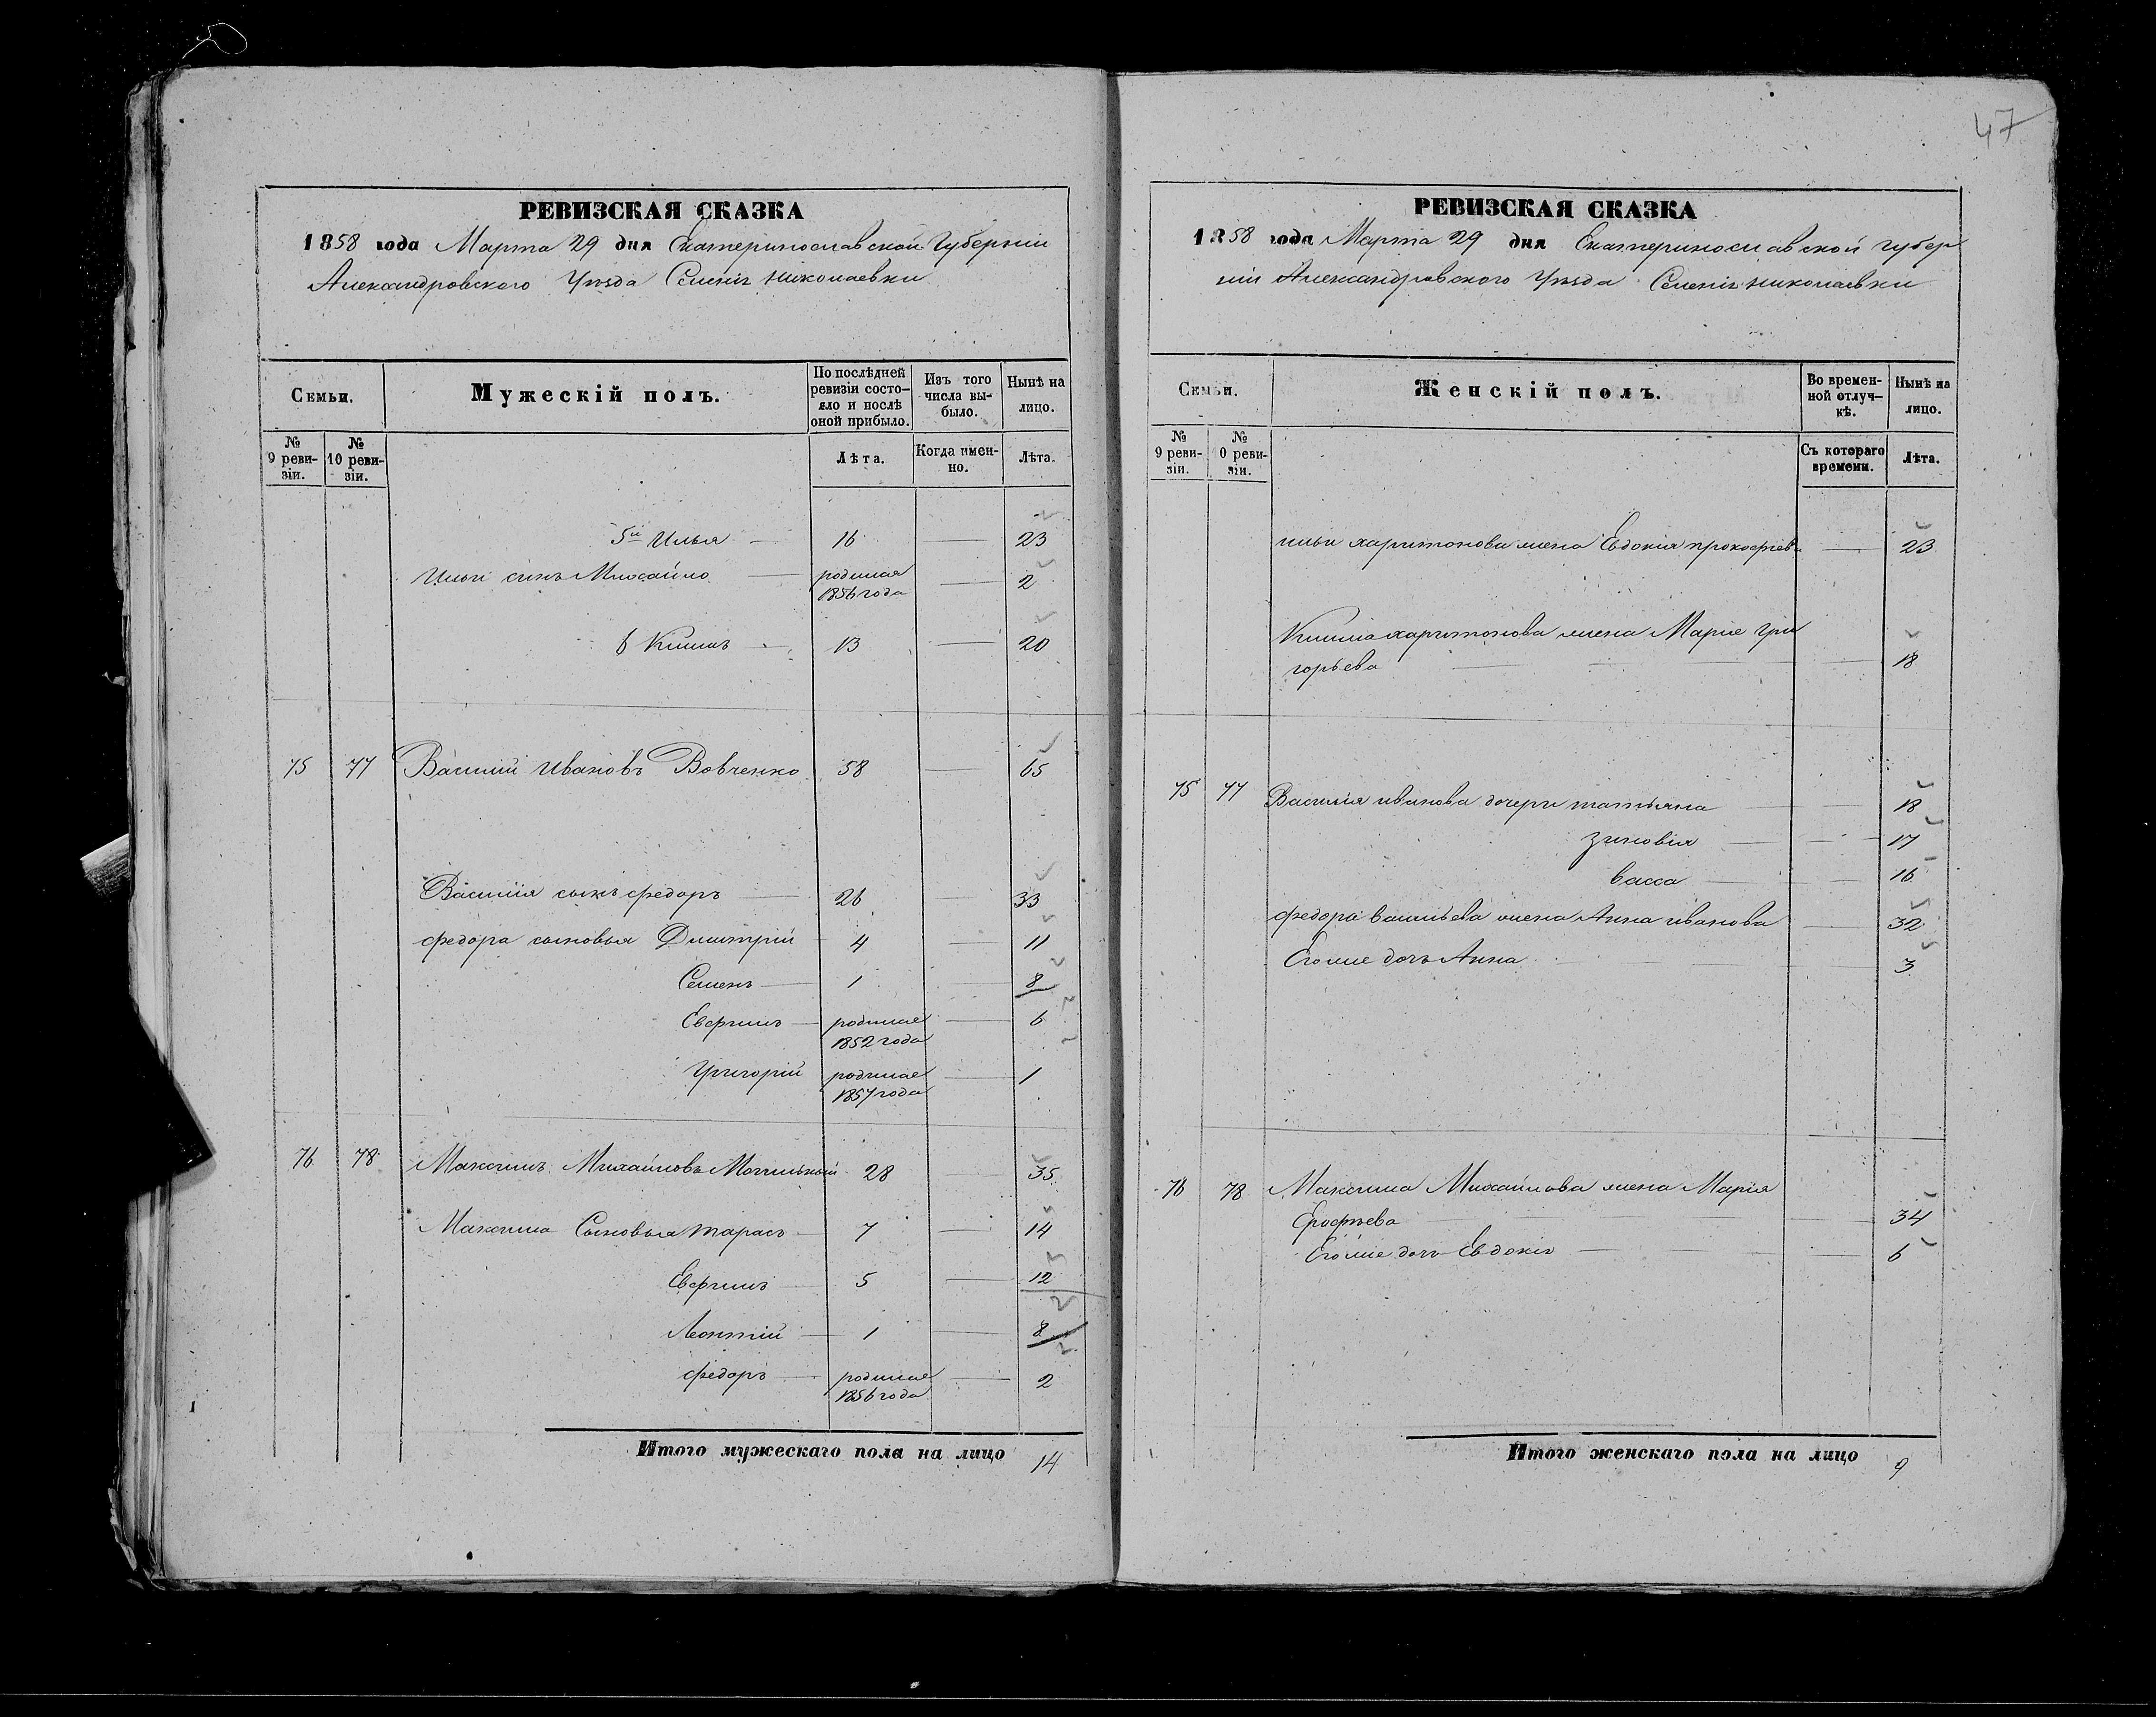 47
РЕВИЗСКАЯ СКАЗКА
1858 года Марта 29 дня Екатеринославской Губерніи
Александровского Уѣзда Селенія Николаевки
Семьи.
Мужескій полъ.
По послѣдней ревизіи состояло и послѣ оной прибыло.
Изъ того числа выбыло.
Нынѣ на лицо.
№ 9 ревизіи.
№ 10 ревизіи.
Лѣта.
Когда именно.
Лѣта.
5й Илья — 16 — 23
Ильи сынъ Михайло — родился 1856 года — 2
6 Климъ — 13 — 20
75 77 Василій Ивановъ Вовченко 58 — 65
Василія сынъ федоръ — 26 — 33
федора сыновья Дмитрій — 4 — 11
Семенъ — 1 — 8
Евфимъ — родился 1852 года — 6
Григорій родился 1857 года — 1
76 78 Максимъ Михайловъ 28 — 35
Максима Сыновья тарасъ — 7 — 14
Евфимъ — 5 — 12
Леонтій — 1 — 8
федоръ — родился 1856 года — 2
Итого мужескаго пола на лицо 14
РЕВИЗСКАЯ СКАЗКА
1858 года Марта 29 дня Екатеринославской губер
ніи Александровского Уѣзда Селенія Николаевки
Семьи.
Женскій полъ.
Во временной отлучкѣ.
Нынѣ на лицо.
№ 9 ревизіи.
№ 0 ревизіи.
Съ котораго времени.
Лѣта.
ильи харитонова жена Евдокия прокофьева — 23
Клима харитонова жена Мария гри
горьева — 18
75 77 Василія иванова дочери татьяна — 18
зиновія — 17
васса — 16
федора васильева жена Анна иванова — 32
Его же дочь Анна — 3
76 78 Максима Михайлова жена Марія
Ерофѣева — 34
Его же дочь Евдокія — 6
Итого женскаго пола на лицо 9